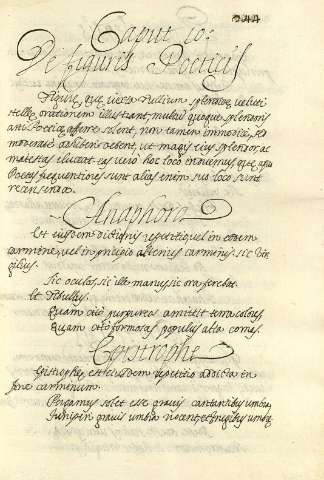 244
Caput 10:
De figuris Poeticis
Figuræ, quæ iuxta Tullium splendore, veluti
stellæ orationem illustrant, multum quoque splendoris
arti Poeticæ afferre solent, non tamen immodicæ, sed
moderatæ adhiberi debent, ut magis eius splendor, ac
maiestas eluceat. eas vero hoc loco
Poetis frequentiores sunt aliæ enim suo loco sunt
recensendæ.
Anaphora
Est eiusdem dictionis repetitio vel in eodem
carmine, vel in principio alterius carminis. sic Vir
gilius.
Sic oculos, sic ille manus, sic ora ferebat.
et Tibullus.
Quam cito purpureos amittit terra colores
Quam cito formosas populus alta comas.
Epistrophe
Epistrophe, est eiusdem repetitio addicta in
fine carminum.
solet esse gravis cantantibus umbra
Juniperi gravis umbra nocent, et frugibus umbræ